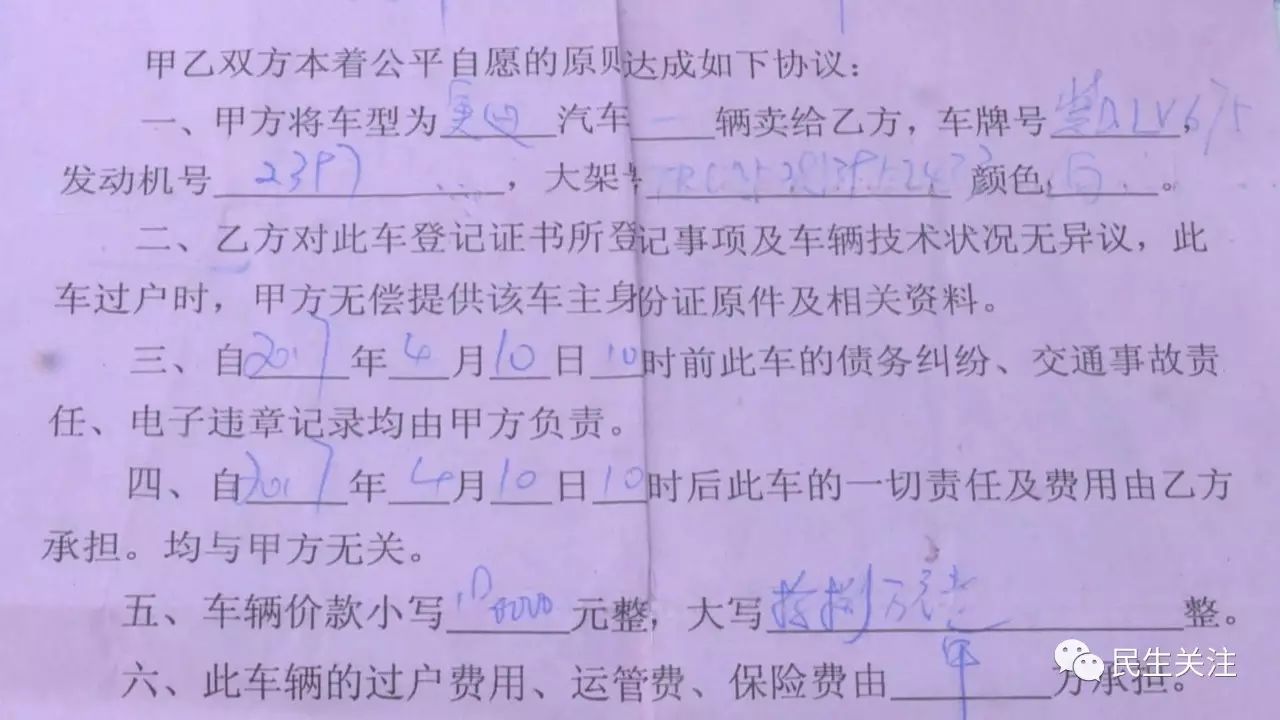 甲乙双方本着公平自愿的原则达成如下协议：
一、甲方将车型为奥迪汽车一辆卖给乙方，车牌号蒙DLV675，
发动机号2397，大架号 颜色白。
二、乙方对此车登记证书所登记事项及车辆技术状况无异议，此
车过户时，甲方无偿提供该车主身份证原件及相关资料。
三、自2017年4月10日10时前此车的债务纠纷、交通事故责
任、电子违章记录均由甲方负责。
四、自2017年4月10日10时后此车的一切责任及费用由乙方
承担。均与甲方无关。
五、车辆价款小写元整，大写拾捌万整。
六、此车辆的过户费用、运管费、保险费由甲方承担。
民生关注